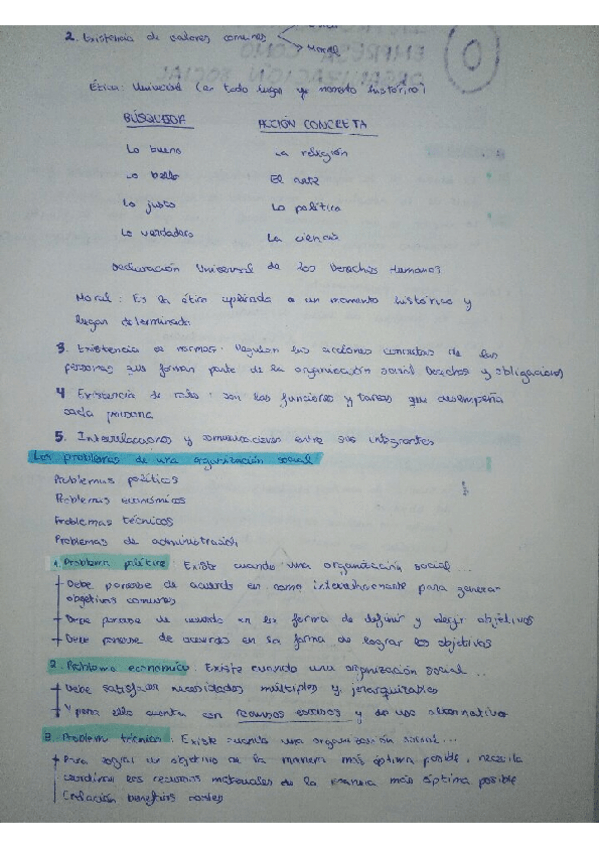 2. Existencia de valores comunes
Moral
Ética: Universal (en todo lugar y momento histórico)
BÚSQUEDA ACCIÓN CONCRETA
Lo bueno La religión
Lo bello El arte
Lo justo La política
Lo verdadero La ciencia
Declaración Universal de los Derechos Humanos
Moral: Es la ética aplicada a un momento histórico y
lugar determinado.
3. Existencia de normas. Regulan las acciones concretas de las
personas que forman parte de la organización social Derechos y obligaciones
4 Existencia de roles: son las funciones y tareas que desempeña
cada persona
5. Interrelaciones y comunicaciones entre sus integrantes
Los problemas de una organización social
Problemas políticos
Problemas económicos
Problemas técnicos
Problemas de administración
1. Problema político. Existe cuando una organización social...
Debe ponerse de acuerdo en como interrelacionarse para generar
objetivos comunes
Debe ponerse de acuerdo en la forma de definir y elegir objetivos
Debe ponerse de acuerdo en la forma de lograr los objetivos
2. Problema economico. Existe cuando una organización social...
Debe satisfacer necesidades múltiples y jerarquizables
Y para ello cuenta con recursos escasos y de uso alternativo
3. Problema técnico. Existe cuando una organización social...
Para lograr un objetivo de la manera más óptima posible, necesita
coordinar los recursos materiales de la manera más óptima posible
beneficios costes